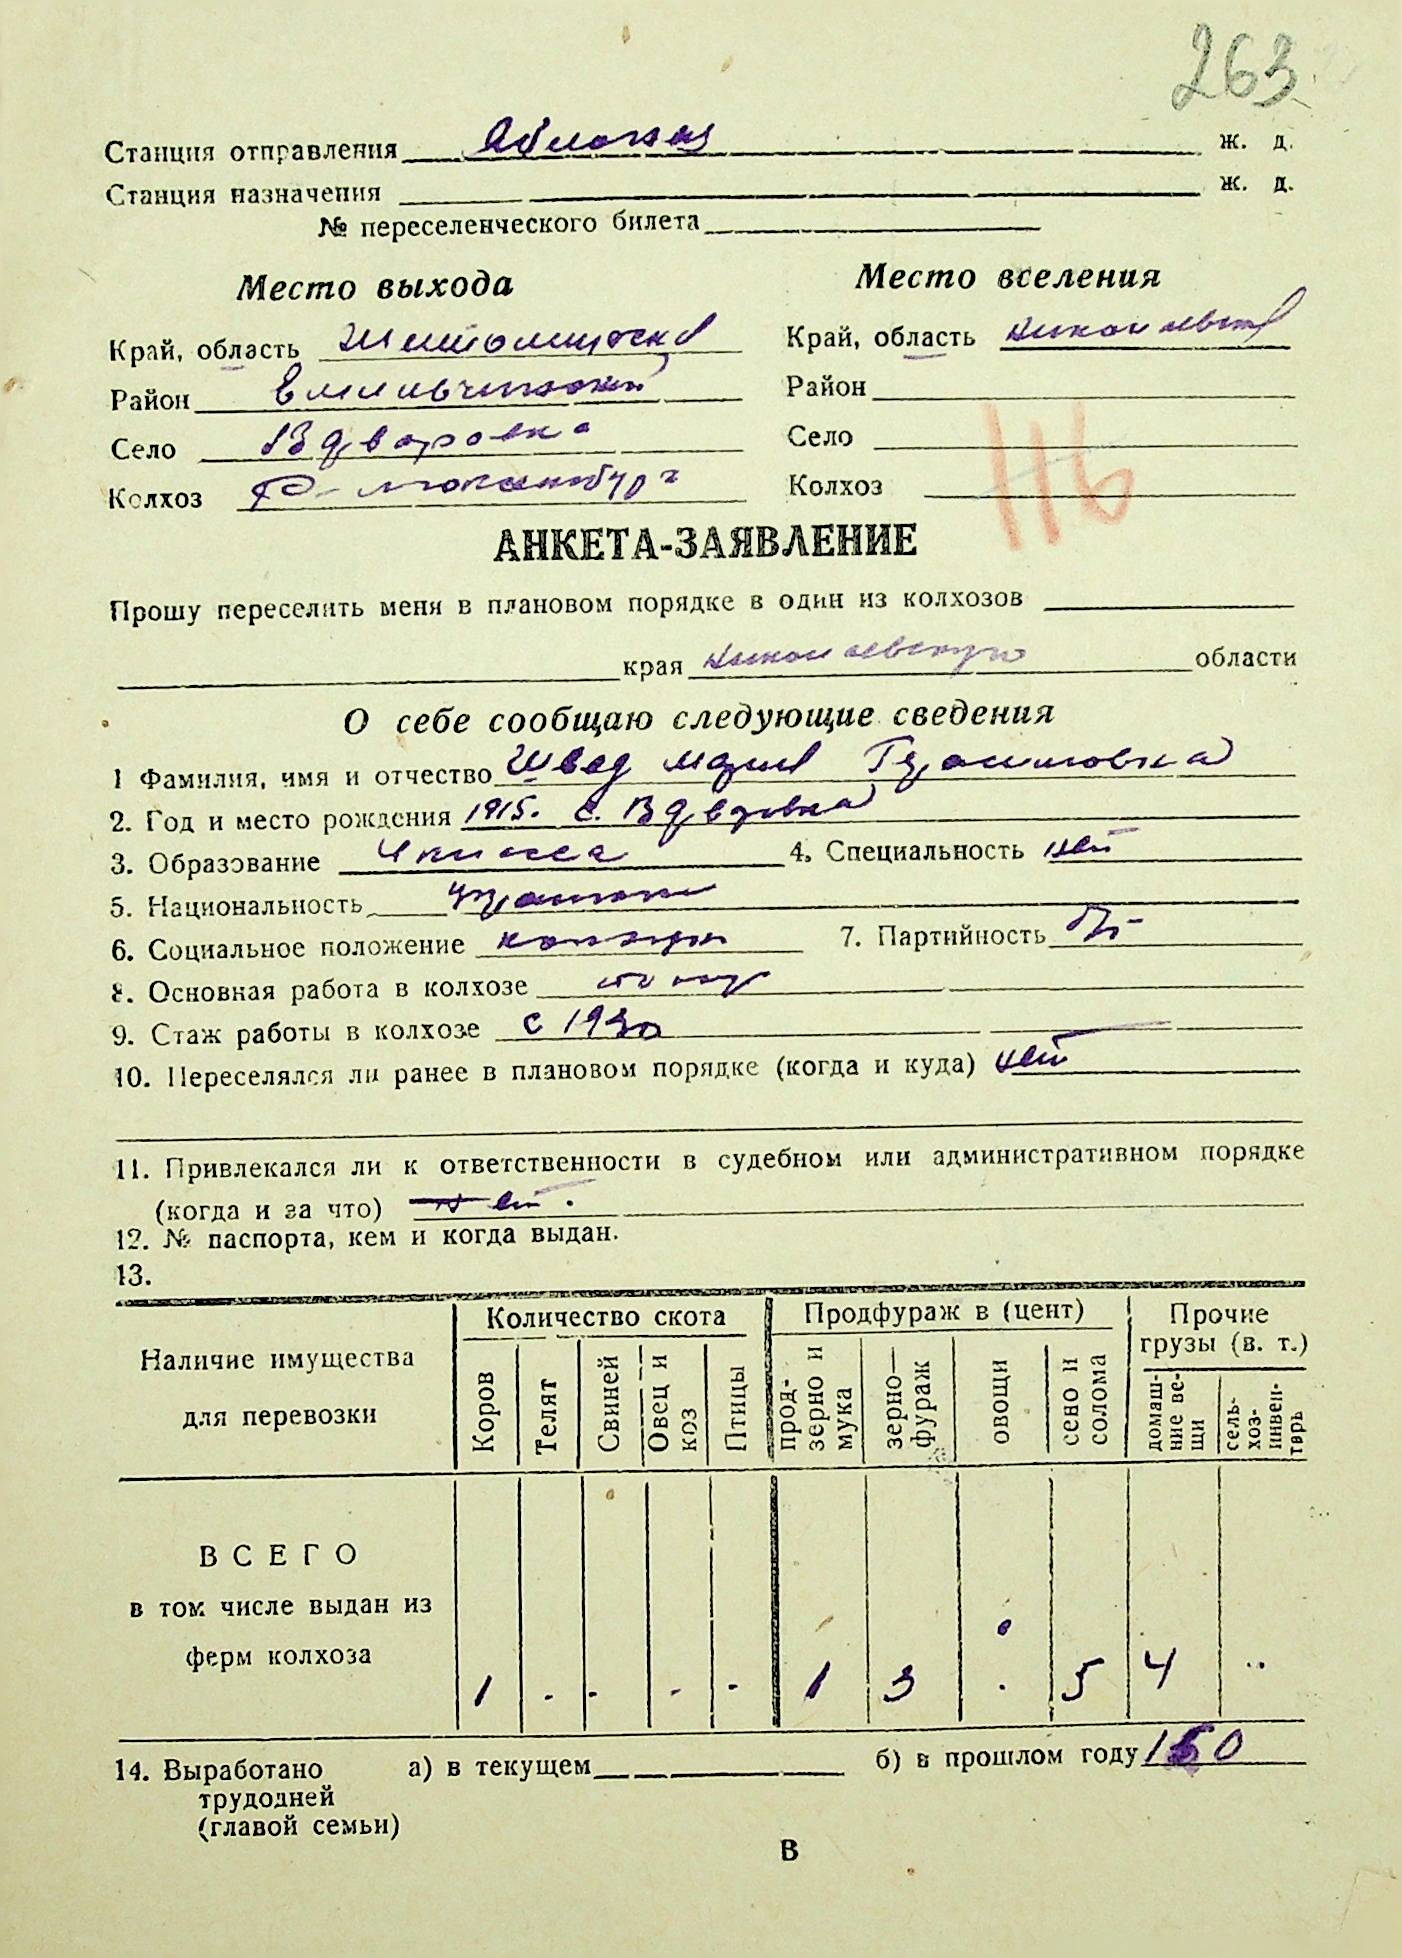 263
Станция отправления Яблонец ж. д.
Станция назначения ж. д.
№ переселенческого билета
Место выхода
Место вселения
Край, область Житомирская
Край, область Николаевская
Район Емильчинский
Район
Село
Село
Колхоз
Колхоз
116
АНКЕТА-ЗАЯВЛЕНИЕ
Прошу переселить меня в плановом порядке в один из колхозов
края Николаевскую области
О себе сообщаю следующие сведения
1 Фамилия, имя и отчество Швед Мария Герасимовна
2. Год и место рождения 1915. с.
3. Образование 4 класса 4. Специальность нет
5. Национальность украинка
6. Социальное положение колхозн 7. Партийность б/п
8. Основная работа в колхозе
9. Стаж работы в колхозе с 1930
10. Переселялся ли ранее в плановом порядке (когда и куда) нет
11. Привлекался ли к ответственности в судебном или административном порядке
(когда и за что) нет.
12. № паспорта, кем и когда выдан.
13.
Наличие имущества для перевозки
Количество скота
Продфураж в (цент)
Прочие грузы (в. т.)
Коров Телят Свиней Овец и коз Птицы прод-зерно и мука зерно—фураж овощи сено и солома домаш-ние ве-щи сель-хоз-инвен-тарь
ВСЕГО
в том числе выдан из
ферм колхоза
1 - - - - 1 3 . 5 4 ..
14. Выработано а) в текущем б) в прошлом году 150
трудодней
(главой семьи)
В